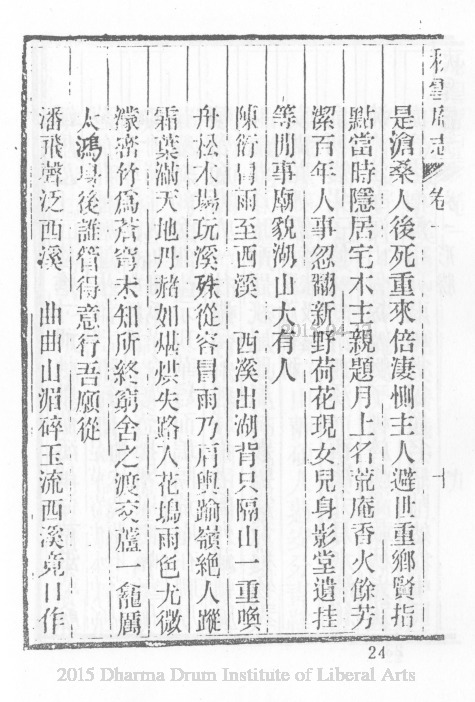 秋雪庵志 卷一 十
是滄桑人後死重來倍淒惻主人避世重鄉賢指
點當時隱居宅木主親題月上名荒庵香火餘芳
潔百年人事忽翻新野荷花現女兒身影堂遺挂
等閒事廟貌湖山大有人
陳衍冒雨至西溪 西溪出湖背只隔山一重喚
舟松木場玩溪殊從容冒雨乃肩輿踰嶺絶人蹤
霜葉滿天地丹赭如堪烘失路入花塢雨色尤微
濛密竹爲蒼穹未知所終窮舍之渡交蘆一龕厲
太鴻身後誰管得意行吾願從
潘飛聲泛西溪 曲曲山湄碎玉流西溪竟日作
24
2015 Dharma Drum Institute of Liberal Arts